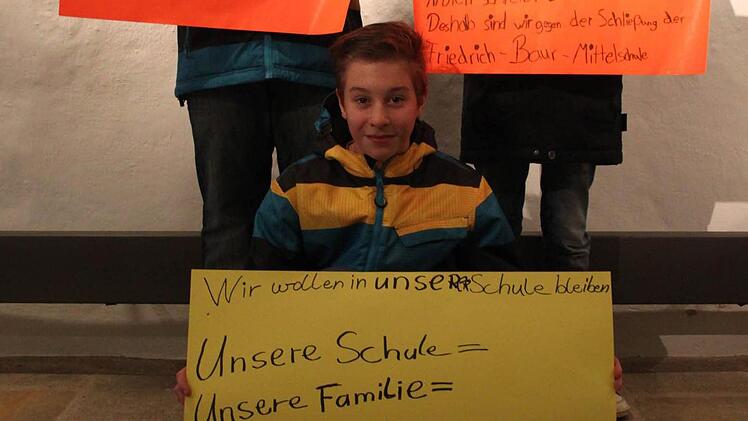 Deshalb sind wir gegen der Schließung der
Friedrich-Baur-Mittelschule
Wir wollen in unserer Schule bleiben
Unsere Schule =
Unsere Familie =